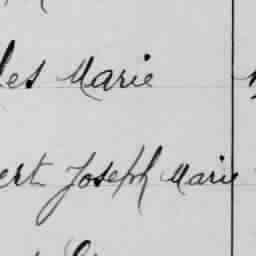 les Marie
ert Joseph Marie